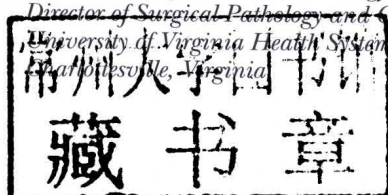 Director of Surgical Pathology and
University of Virginia Health System
Charlottesville, Virginia
常州大学图书馆
藏书章